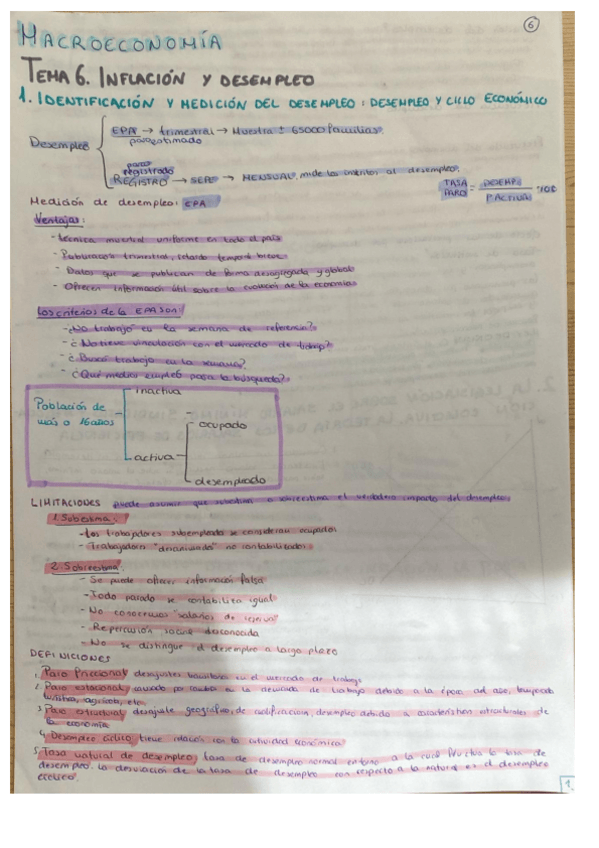 6
MACROECONOMÍA
TEMA 6. INFLACIÓN Y DESEMPLEO
1. IDENTIFICACIÓN Y MEDICIÓN DEL DESEMPLEO: DESEMPLEO Y CICLO ECONÓMICO
EPA → trimestral → Muestra ± 65000 familias.
paro estimado
Desempleo
paro registrado
REGISTRO → SEPE → MENSUAL, mide los inscritos al desempleo.
TASA PARO = DESEMP. / P. ACTIVA · 100
Medición de desempleo: EPA
Ventajas:
- Técnica muestral uniforme en todo el país
- Publicación trimestral, retardo temporal breve
- Datos que se publican de forma desagregada y global
- Ofrecen información útil sobre la evolución de la economía
Los criterios de la EPA son:
- ¿No trabajó en la semana de referencia?
- ¿No tiene vinculación con el mercado de trabajo?
- ¿Buscó trabajo en la semana?
- ¿Qué medios empleó para la búsqueda?
inactiva
Población de
más o 16 años
ocupado
activa
desempleado
LIMITACIONES puede asumir que subestima o sobreestima el verdadero impacto del desempleo
1. Subestima:
- Los trabajadores subempleados se consideran ocupados
- Trabajadores "desanimados" no contabilizados
2. Sobreestima:
- Se puede ofrecer información falsa
- Todo parado se contabiliza igual
- No conocemos "salarios de reserva"
- Repercusión social desconocida
- No se distingue el desempleo a largo plazo
DEFINICIONES
1. Paro friccional desajustes transitorios en el mercado de trabajo
2. Paro estacional, causado por cambios en la demanda de trabajo debido a la época del año, temporada
turística, agrícola, etc.
3. Paro estructural desajuste geográfico, de cualificación, desempleo debido a características estructurales de
la economía
4. Desempleo cíclico tiene relación con la actividad económica
5. Tasa natural de desempleo, tasa de desempleo normal entorno a la cual fluctúa la tasa de
desempleo. La desviación de la tasa de desempleo con respecto a la natural es el desempleo
cíclico.
1